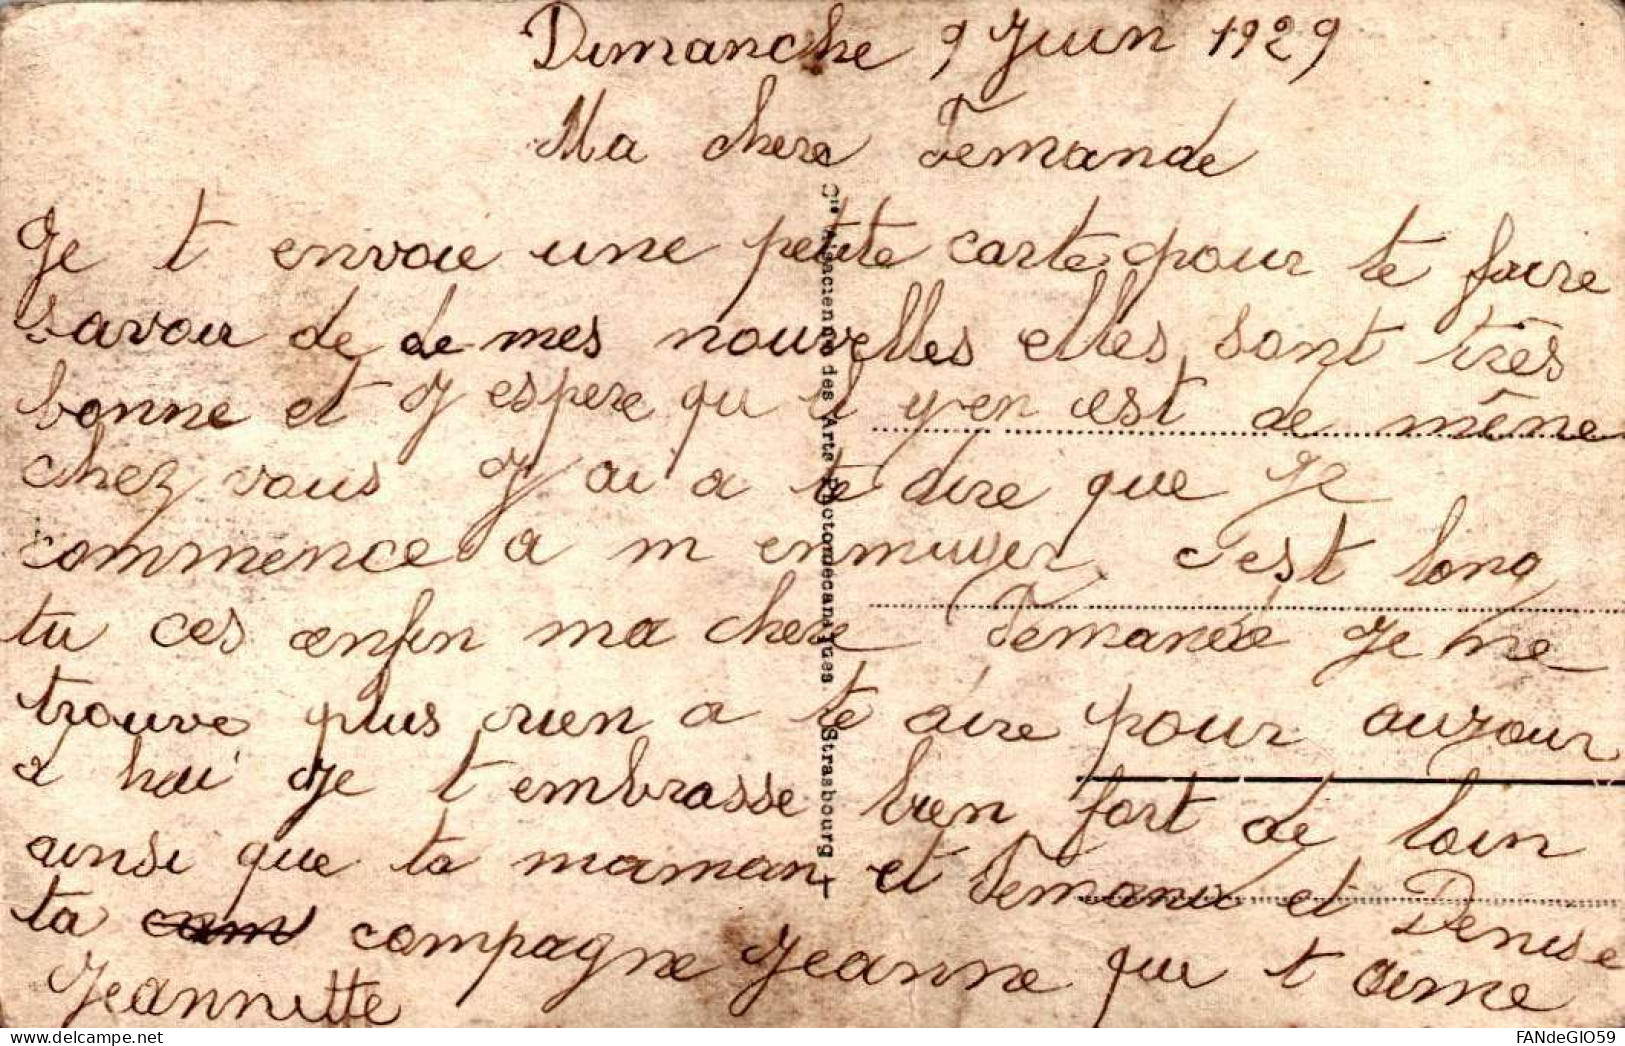 Dimanche 9 Juin 1929
Ma chere Fernande
Je t envoie une petite carte pour te faire
savoir de de mes nouvelles elles sont très
bonne et J espere qu il y en est de même
chez vous J ai a te dire que Je
commence a m ennuyer c'est long
tu ces enfin ma chere Fernande Je ne
trouve plus rien a te dire pour aujour
d hui Je t embrasse bien fort de loin
ainsi que ta maman et Fernand et Denise
ta com compagne Jeanne qui t aime
Jeannette
Cie Alsacienne des Arts Photomécaniques Strasbourg
FANdeGIO59